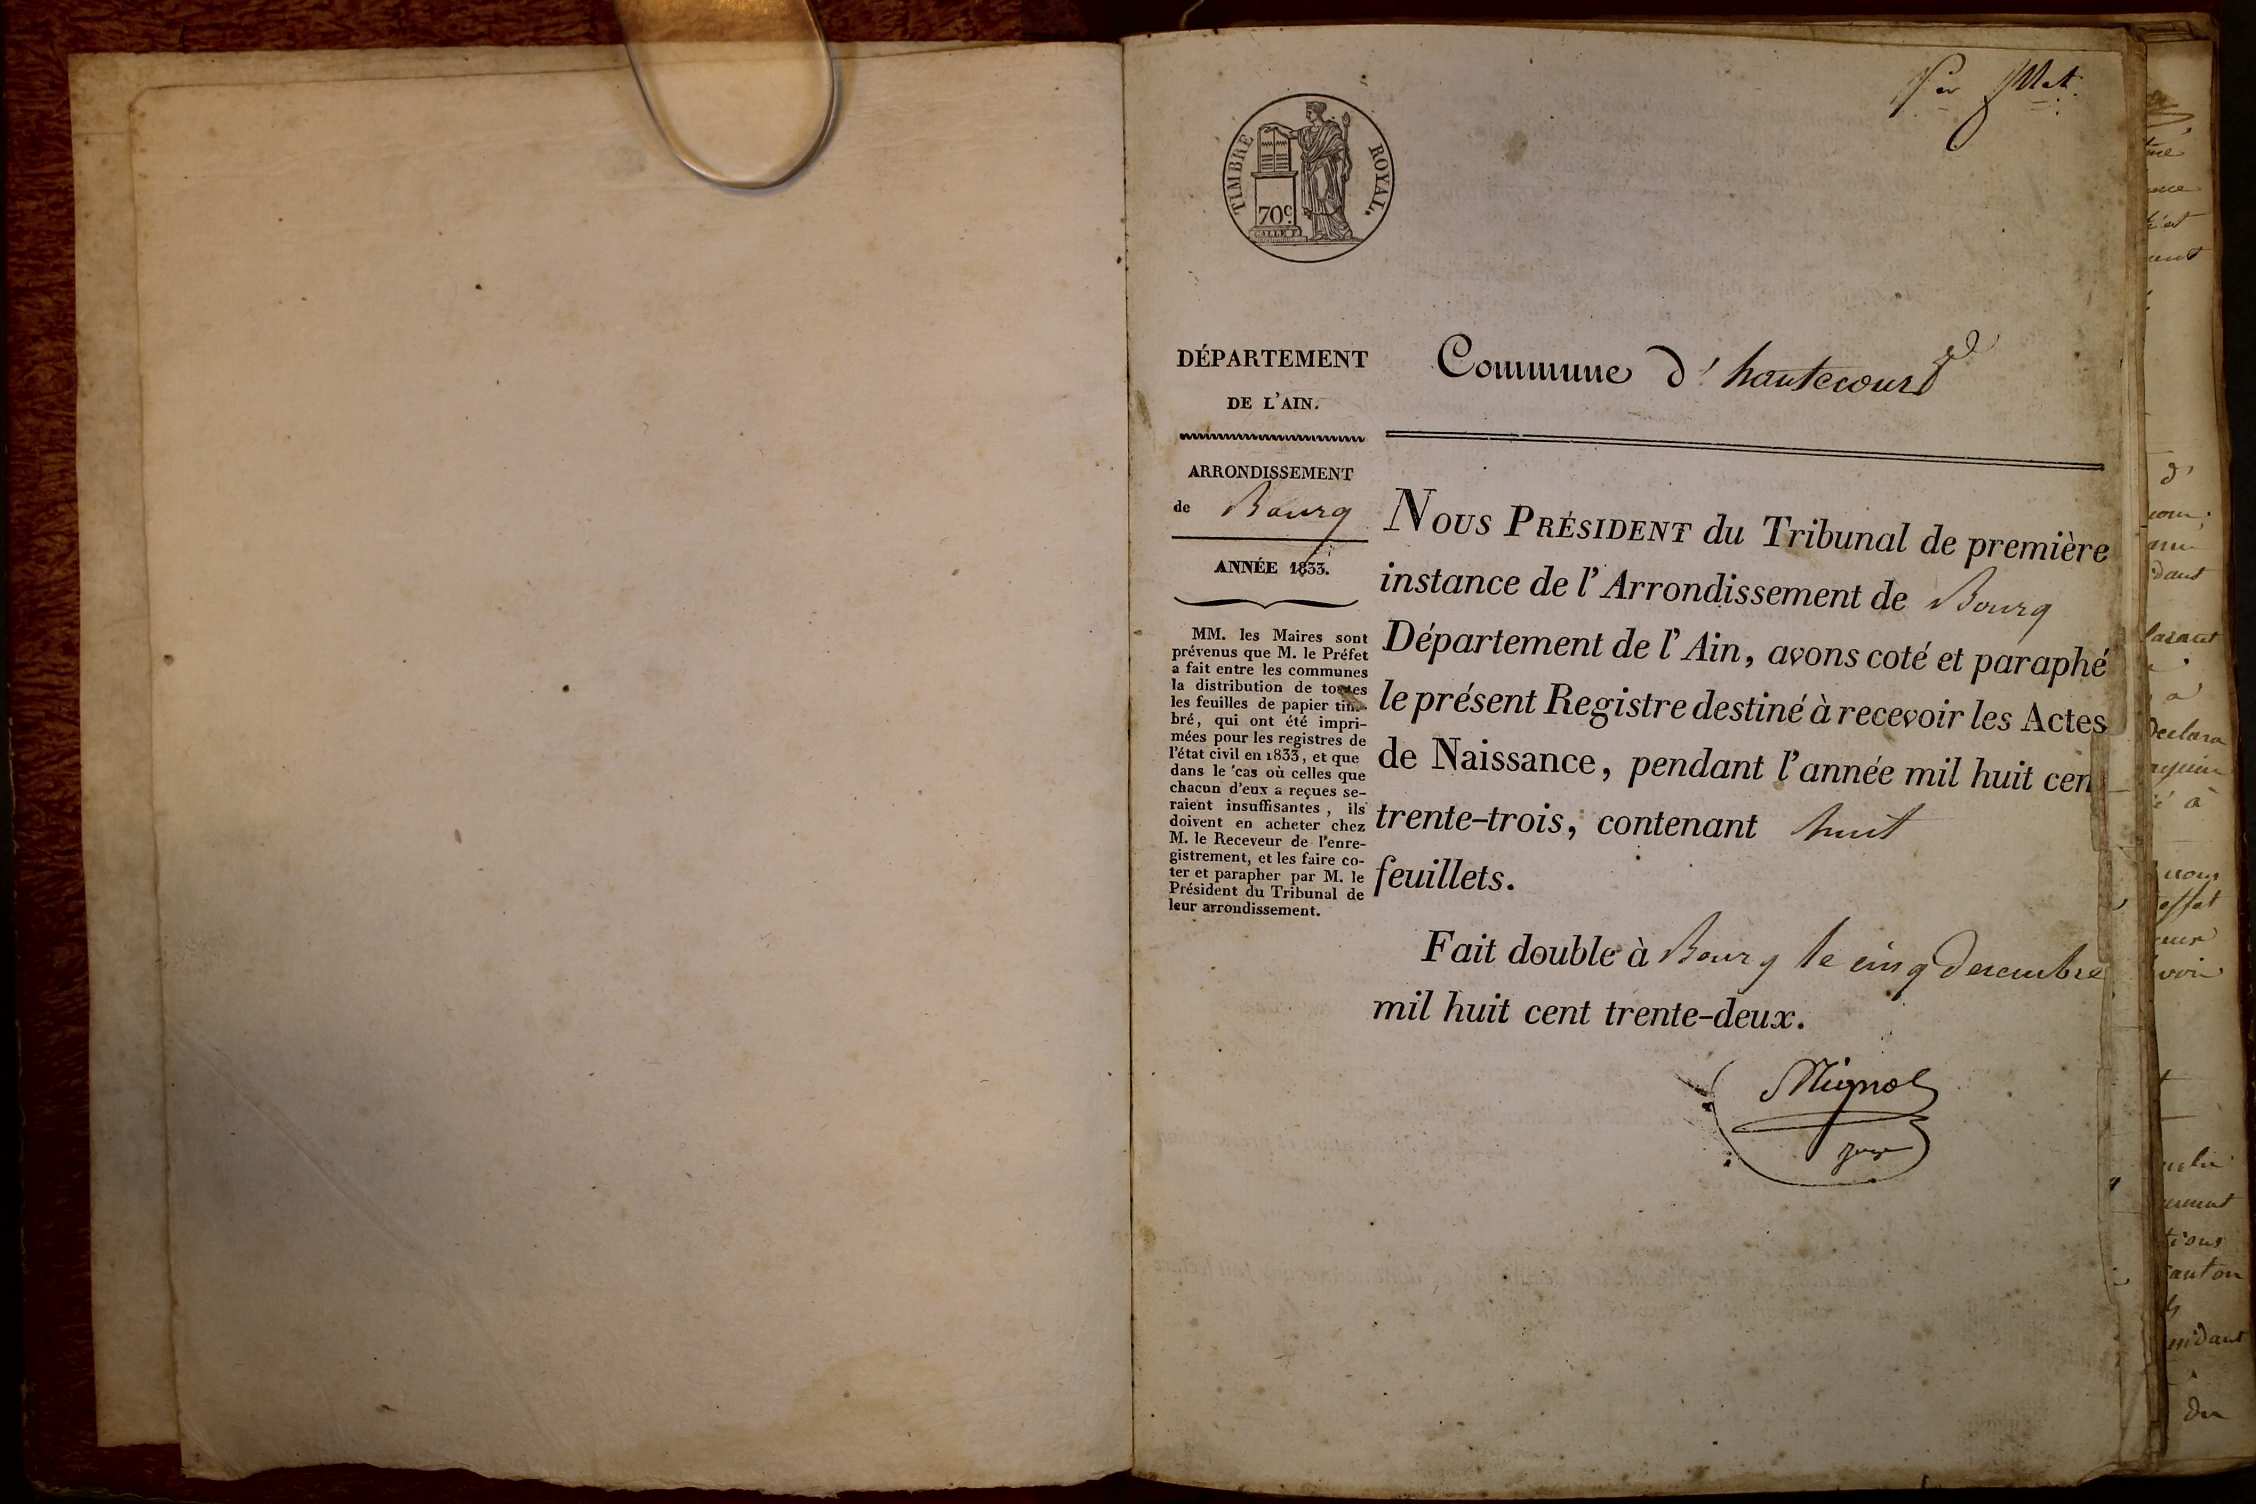 TIMBRE ROYAL.
70c.
DÉPARTEMENT
DE L'AIN.
ARRONDISSEMENT
de Bourg
ANNÉE 1833.
MM. les Maires sont
prévenus que M. le Préfet
a fait entre les communes
la distribution de toutes
les feuilles de papier tim-
bré, qui ont été impri-
mées pour les registres de
l'état civil en 1833, et que
dans le cas où celles que
chacun d'eux a reçues se-
raient insuffisantes, ils
doivent en acheter chez
M. le Receveur de l'enre-
gistrement, et les faire co-
ter et parapher par M. le
Président du Tribunal de
leur arrondissement.
Commune d'hautecourt
NOUS PRÉSIDENT du Tribunal de première
instance de l'Arrondissement de Bourg
Département de l'Ain, avons coté et paraphé
le présent Registre destiné à recevoir les Actes
de Naissance, pendant l'année mil huit cent
trente-trois, contenant huit
feuillets.
Fait double à Bourg le cinq decembre
mil huit cent trente-deux.
Mignot
juge